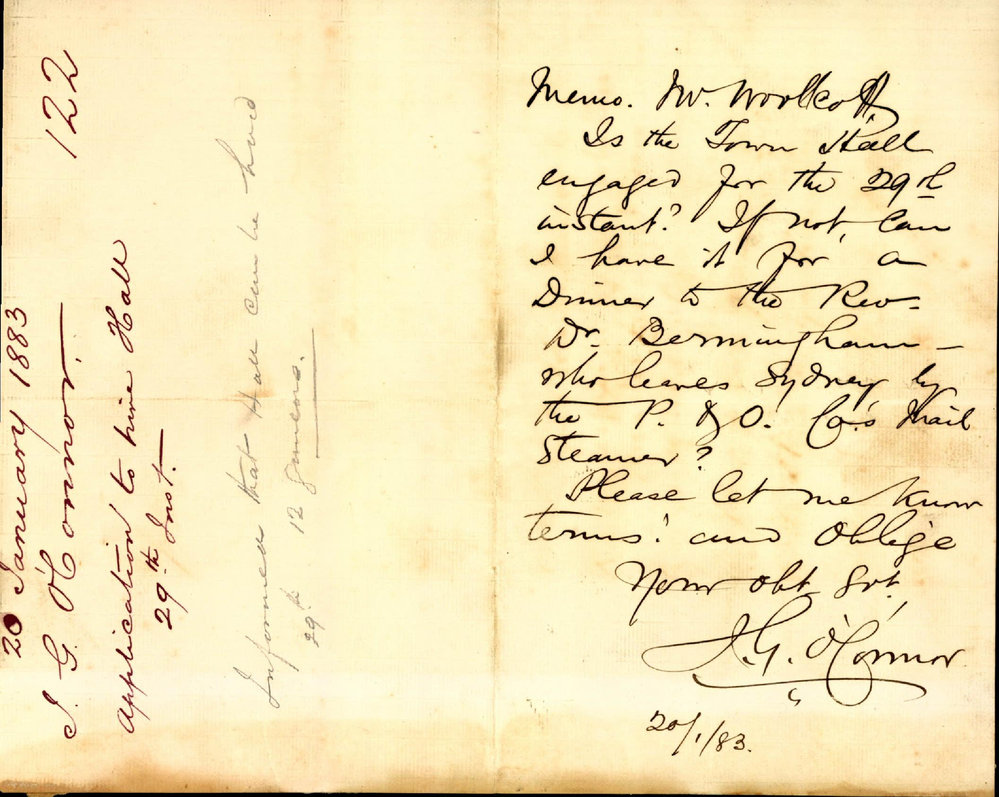 122
20 January 1883
J. G. O'Connor.
Application to hire Hall
29th Inst.
Informed that Hall can be hired
29th 12 Guineas.
Memo. Mr. Woolcott
Is the Town Hall
engaged for the 29th
instant? If not, can
I have it for a
Dinner to the Rev.
Dr. Bermingham -
who leaves Sydney by
the P. & O. Co.'s Mail
Steamer?
Please let me know
terms! and oblige
Your obt. Svt.
J.G. O'Connor
20/1/83.